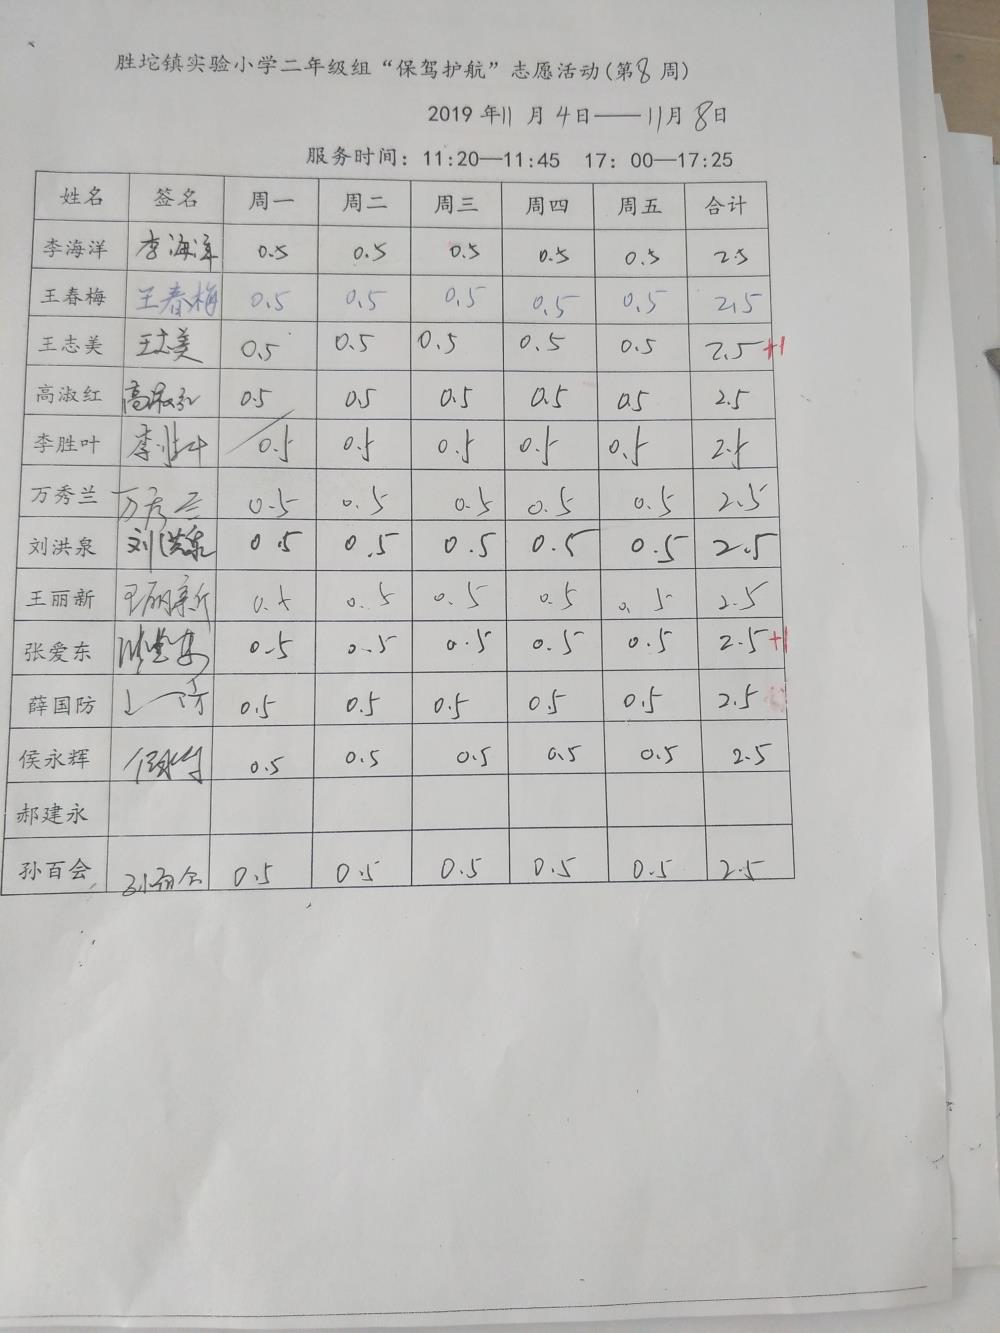 胜坨镇实验小学二年级组“保驾护航”志愿活动(第8周)
2019年11月4日——11月8日
服务时间：11:20—11:45 17：00—17:25
姓名 签名 周一 周二 周三 周四 周五 合计
李海洋 李海洋 0.5 0.5 0.5 0.5 0.5 2.5
王春梅 王春梅 0.5 0.5 0.5 0.5 0.5 2.5
王志美 王志美 0.5 0.5 0.5 0.5 0.5 2.5+1
高淑红 高淑红 0.5 0.5 0.5 0.5 0.5 2.5
李胜叶 李胜叶 0.5 0.5 0.5 0.5 0.5 2.5
万秀兰 万秀兰 0.5 0.5 0.5 0.5 0.5 2.5
刘洪泉 刘洪泉 0.5 0.5 0.5 0.5 0.5 2.5
王丽新 王丽新 0.5 0.5 0.5 0.5 0.5 2.5
张爱东 张爱东 0.5 0.5 0.5 0.5 0.5 2.5+1
薛国防 0.5 0.5 0.5 0.5 0.5 2.5
侯永辉 侯永辉 0.5 0.5 0.5 0.5 0.5 2.5
郝建永
孙百会 孙百会 0.5 0.5 0.5 0.5 0.5 2.5